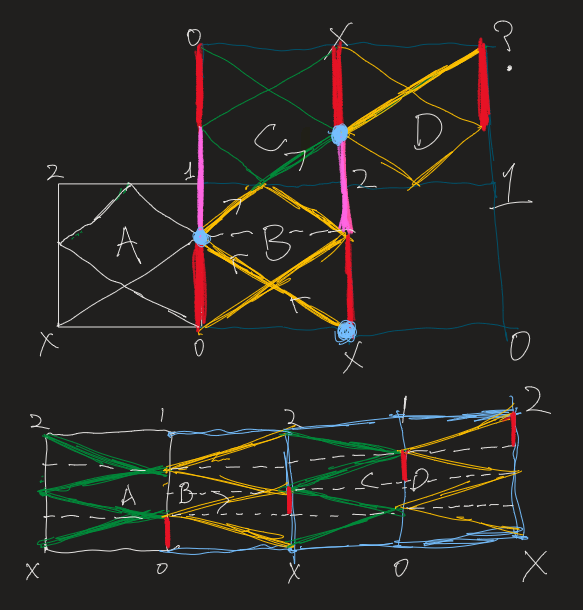 0 X ?
C D
2 1 2 1
A B
X 0 X 0
2 1 2 1 2
A B C D
X 0 X 0 X